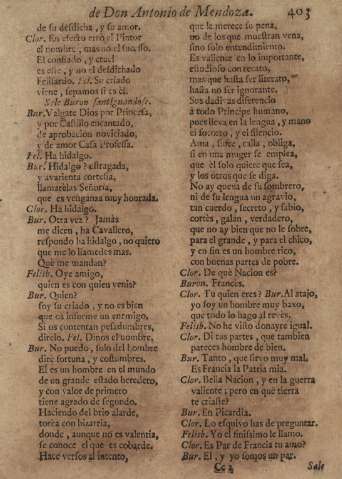 de Don Antonio de Mendoza. 403
de su desdicha, y su amor.
Clor. En efecto erró el Pintor
el nombre, mas no el suceso.
El confiado, y cruel
es este, y no el desdichado
Felisardo. Fel. Su criado
viene, sepamos si es él.
Sale Buron santiguandose.
Bur. Valgate Dios por Princesa,
y por Castillo encantado,
de aprobacion noviciado,
y de amor Casa Professa.
Fel. Ha hidalgo.
Bur. Hidalgo? estragada,
y avarienta cortesia,
llamarèlas Señoria,
que es venganza muy honrada.
Clor. Ha hidalgo.
Bur. Otra vez? Jamás
me dicen, ha Cavallero,
respondo ha hidalgo, no quiero
que me lo llamedes mas.
Què me mandan?
Felisb. Oye amigo,
quien es con quien venia?
Bur. Quien?
soy su criado, y no es bien
que os informe un enemigo,
Si os contentan pesadumbres,
direlo. Fel. Dinos el hombre.
Bur. No puedo, solo del hombre
dirè fortuna, y costumbres.
El es un hombre en el mundo
de un grande estado heredero,
y con valor de primero
tiene agrado de segundo.
Haciendo del brio alarde,
torea con bizarria,
donde, aunque no es valentia,
se conoce el que es cobarde.
Hace versos al intento,
que le merece su pena,
no de los que muestran vena,
sino solo entendimiento.
Es valiente en lo importante,
estudioso con recato,
mas que hasta ser
hasta no ser ignorante.
Sus dadivas diferencio
à todo Principe humano,
pues lleva en la lengua, y mano
el socorro, y el silencio.
Ama, sirve, calla, obliga,
si en una muger se emplea,
que el solo quiere que sea,
y los otros que se diga.
No ay queva de su sombrero,
ni de su lengua un agravio,
tan cuerdo, secreto, y sabio,
cortès, galan, verdadero,
que no ay bien que no le sobre,
para el grande, y para el chico,
y en fin es un hombre rico,
con buenas partes de pobre.
Clor. De què Nacion es?
Buron. Francés.
Clor. Tu quien eres? Bur. Al atajo,
yo soy un hombre muy baxo,
que todo lo hago al revès.
Felisb. No he visto donayre igual.
Clor. Di tus partes, que tambien
pareces hombre de bien.
Bur. Tanto, que sirvo muy mal.
Es Francia la Patria mia.
Clor. Bella Nacion, y en la guerra
valiente; pero en què tierra
te criaste?
Bur. En Picardia.
Clor. Lo esquivo has de preguntar.
Felisb. Yo el finissimo le llamo.
Clor. Es Par de Francia tu amo?
Bur. El, y yo somos un par.
Cc 2 Sale